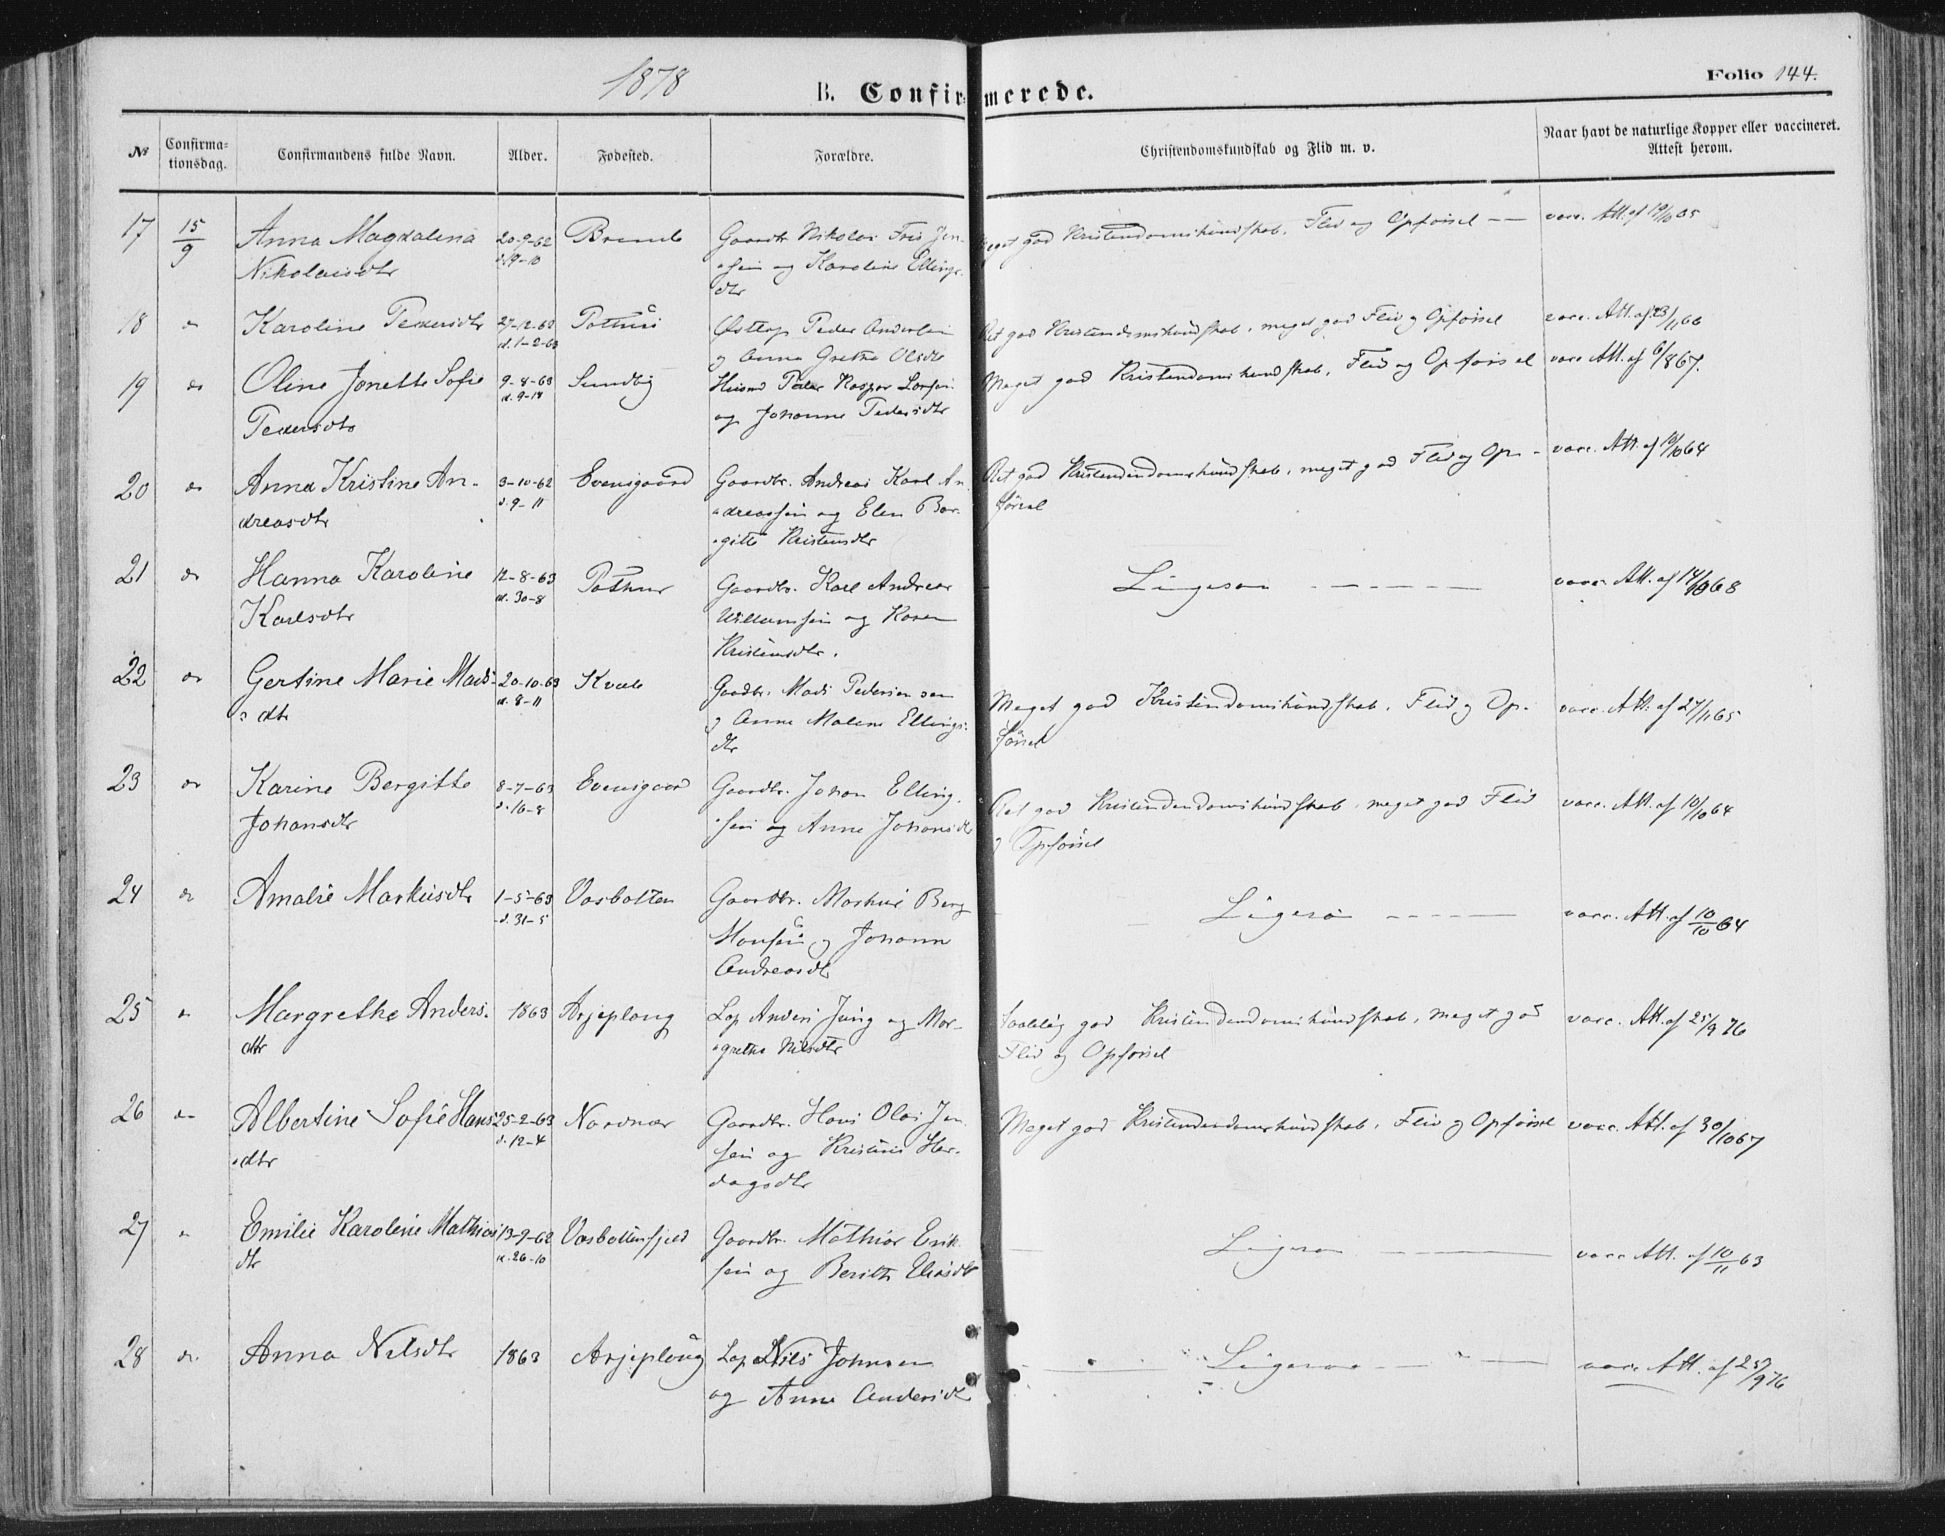 1878
B. Confirmerede.
Folio 144.
№ Confirmationsdag. Confirmandens fulde Navn. Alder. Fødested. Forældre. Christendomskundskab og Flid m. v. Naar havt de naturlige Kopper eller vaccineret. Attest herom.
17 15/9 Anna Magdalena 20-9-62 Gaardbr. Nikolai Fris Jen- Meget god Kristendomskundskab, Flid og Opførsel vacc. Att. af
Nikolaisdtr d. 19-10 -sen og Karoline Ellings-
dtr
18 Karoline Pedersdtr 27-12-62 Pothus Peder Andersen Ret god Kristendomskundskab, meget god Flid og Opførsel vacc. Att. af
d. 1-2-63 og Anna Grethe Olsdtr
19 do Oline Jonette Sofie 9-8-63 Sundby Husmd Peder Kaspar Larsen Meget god Kristendomskundskab, Flid og Opførsel vacc Att. af 6/8 67.
Pedersdtr d. 9-14 og Johanne Pedersdtr
20 do Anna Kristine An- 3-10-62 Evensgaard Gaardbr. Andreas Karl An- Ret god Kristendomskundskab, meget god Flid og Op- vacc. Att. af 10/10 64
dreasdtr d. 9-11 -dreassen og Elen Ber- førsel
-gitte Kristensdtr
21 do Hanna Karoline 12-8-63 Pothus Gaardbr. Karl Andreas Ligesaa vacc. Att. af 14/10 68
Karlsdtr d. 30-8 Willumsen og Karen
Kristensdtr.
22 do Gertine Marie Mads- 20-10-63 Kvale Gaardbr. Mads Pedersen Meget god Kristendomskundskab, Flid og Op- vacc. Att. af 27/11 65
dtr d. 8-11 og Anne Malene Ellings- førsel
dtr
23 do Karine Bergitte 8-7-63 Evensgaard Gaardbr. Johan Elling- Ret god Kristendomskundskab, meget god Flid vacc. Att. af 10/10 64
Johansdtr d. 16-8 -sen og Anne Johansdtr og Opførsel
24 do Amalie Markusdtr 1-5-63 Vasbotten Gaardbr. Markus Berg Ligesaa vacc. Att. af 10/10 64
d. 31-5 Monsen og Johanna
Andreasdtr
25 Margrethe Anders- 1863 Arjeplong Lap Anders Jung og Mar- god Kristendomskundskab, meget god vacc. Att. af 25/9 76
dtr -grethe Nilsdtr Flid og Opførsel
26 do Albertine Sofie Hans- 25-2-63 Nordnæs Gaardbr. Hans Olai Jen- Meget god Kristendomskundskab, Flid og Opførsel vacc. Att. af 30/10 67
-dtr d. 12-4 sen og Kristine Her-
dagsdtr
27 Emilie Karoline Mathias- 13-9-62 Vasbottenfjeld Gaardbr. Mathias Erik- Ligesaa vacc Att. af 10/11 63
dtr d. 26-10 sen og Berith Eliasdtr
28 do. Anna Nilsdtr 1863 Arjeploug Lap Nils Johnsen Ligesaa vacc. Att. af 25/9 76
og Anne Andersdtr